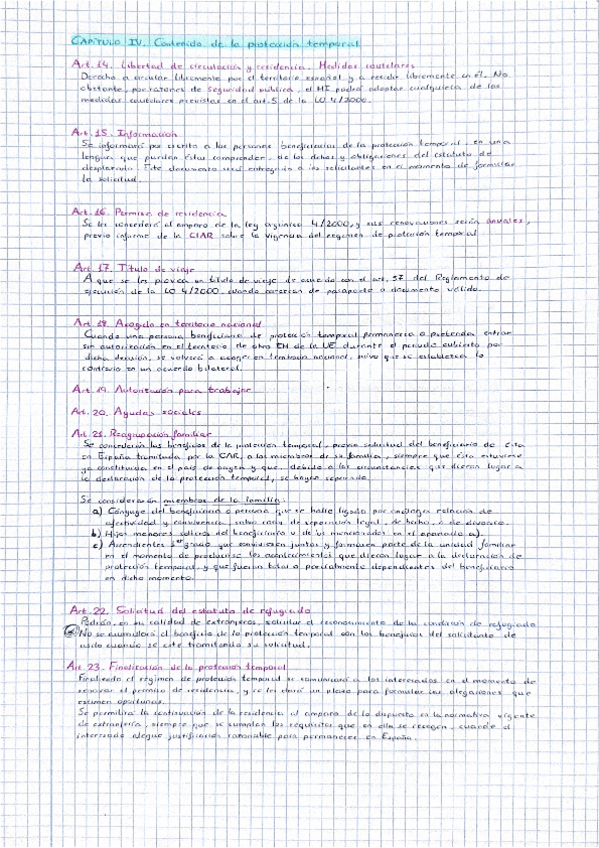 CAPÍTULO IV. Contenido de la protección temporal
Art. 14. Libertad de circulación y residencia. Medidas cautelares
Derecho a circular libremente por el territorio español y a residir libremente en él. No
obstante, por razones de seguridad pública, el MI podrá adoptar cualquiera de las
medidas cautelares previstas en el art. 5 de la LO 4/2000.
Art. 15. Información
Se informará por escrito a las personas beneficiarias de la protección temporal, en una
lengua que puedan éstas comprender, de los dchos y obligaciones del estatuto de
desplazado. Este documento será entregado a los solicitantes en el momento de formular
la solicitud.
Art. 16. Permiso de residencia
Se les concederá al amparo de la ley orgánica 4/2000, y sus renovaciones serán anuales,
previo informe de la CIAR sobre la vigencia del régimen de protección temporal
Art. 17. Título de viaje
A que se les provea un título de viaje de acuerdo con el art. 57 del Reglamento de
ejecución de la LO 4/2000, cuando carezcan de pasaporte o documento válido.
Art. 18. Acogida en territorio nacional
Cuando una persona beneficiaria de protección temporal permanezca o pretenda entrar
sin autorización en el territorio de otro EM de la UE durante el periodo cubierto por
dicha decisión, se volverá a acoger en territorio nacional, salvo que se establezca lo
contrario en un acuerdo bilateral.
Art. 19. Autorización para trabajar
Art. 20. Ayudas sociales
Art. 21. Reagrupación familiar
Se concederán los beneficios de la protección temporal, previa solicitud del beneficiario de ésta
en España tramitada por la OAR, a los miembros de su familia, siempre que ésta estuviese
ya constituida en el país de origen y que, debido a las circunstancias que dieron lugar a
la declaración de la protección temporal, se hayan separado.
Se considerarán miembros de la familia:
a) Cónyuge del beneficiario o persona que se halle ligada por análoga relación de
afectividad y convivencia, salvo casos de separación legal, de hecho, o de divorcio.
b) Hijos menores solteros del beneficiario o de los mencionados en el apartado a)
c) Ascendientes 1er grado que conviviesen juntos y formasen parte de la unidad familiar
en el momento de producirse los acontecimientos que dieron lugar a la declaración de
protección temporal, y que fueran total o parcialmente dependientes del beneficiario
en dicho momento.
Art. 22. Solicitud del estatuto de refugiado
Podrán, en su calidad de extranjeros, solicitar el reconocimiento de la condición de refugiado
No se acumulará el beneficio de la protección temporal con los beneficios del solicitante de
asilo cuando se esté tramitando su solicitud.
Art. 23. Finalización de la protección temporal
Finalizado el régimen de protección temporal se comunicará a los interesados en el momento de
renovar el permiso de residencia, y se les dará un plazo para formular las alegaciones que
estimen oportunas.
Se permitirá la continuación de la residencia al amparo de lo dispuesto en la normativa vigente
de extranjería, siempre que se cumplan los requisitos que en ella se recogen, cuando el
interesado alegue justificación razonable para permanecer en España.